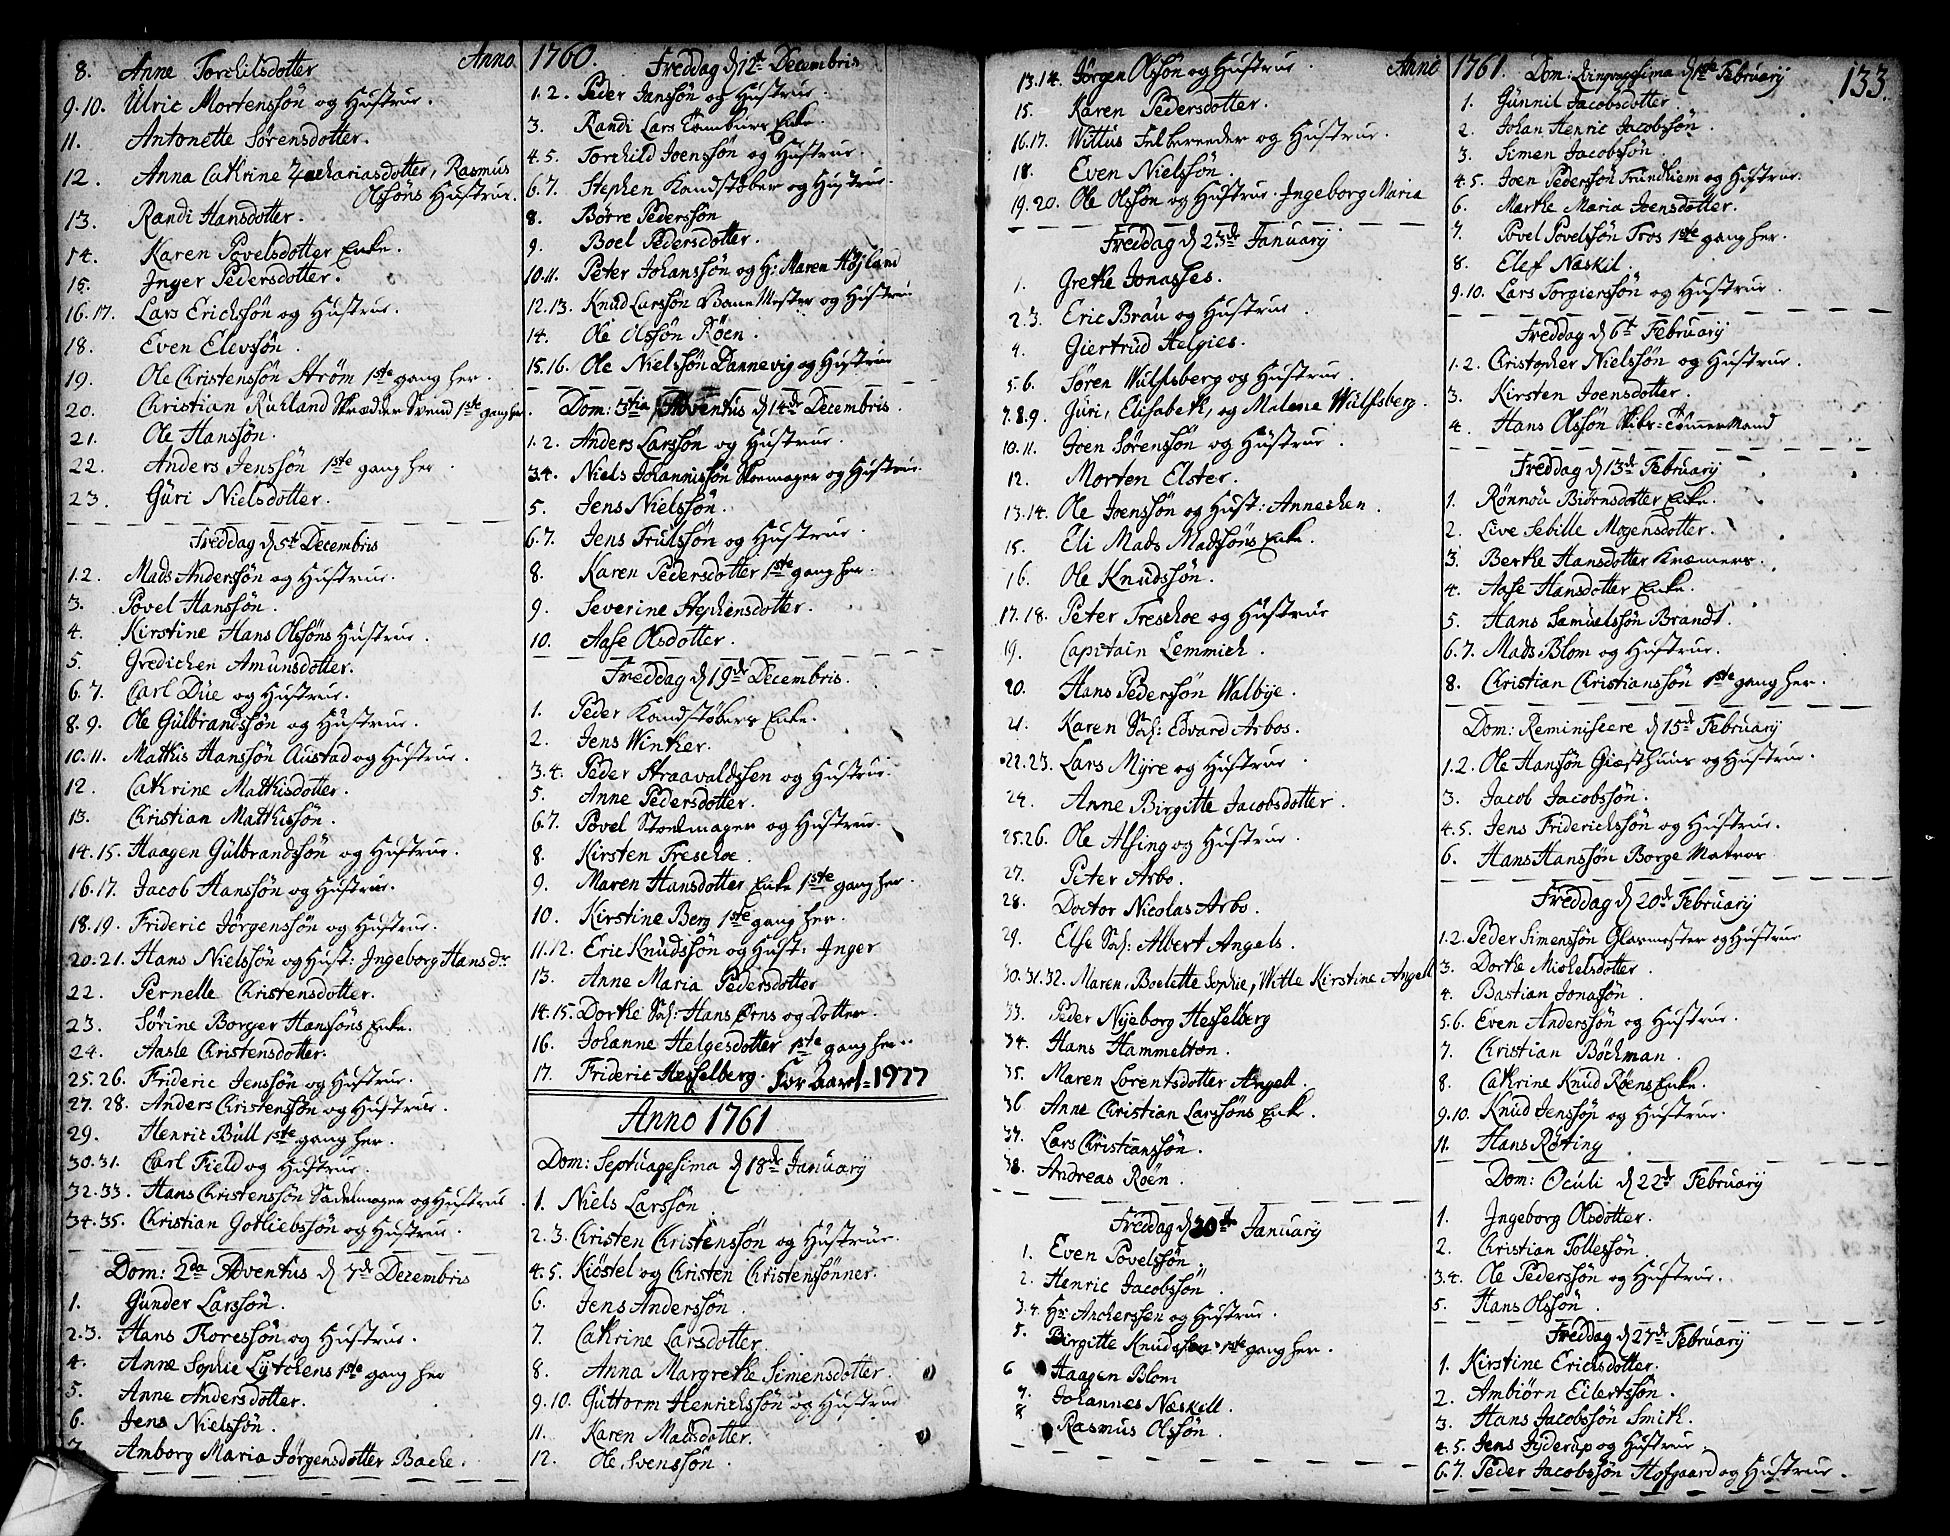 Anno 1760.
8. Anne Torchilsdotter
9.10. Ulric Mortenssøn og Hustrue.
11. Antonette Sørensdotter.
12. Anna Cathrine Zachariasdotter, Rasmus
Olssøns Hustrue.
13. Randi Hansdotter.
14. Karen Povelsdotter Enke.
15. Inger Pedersdotter.
16.17. Lars Erichssøn og Hustrue.
18. Even Elevssøn.
19. Ole Christenssøn Strøm 1ste gang her.
20. Christian Ruhland Skrædder Svend 1ste gang her.
21. Ole Hanssøn.
22. Anders Jenssøn 1ste gang her.
23. Guri Nielsdotter.
Freddag d 5t Decembris
1.2. Mads Anderssøn og Hustrue.
3. Povel Hanssøn.
4. Kirstine Hans Olssøns Hustrue.
5. Gredichen Amunsdotter.
6.7. Carl Due og Hustrue.
8.9. Ole Gulbrandssøn og Hustrue.
10.11. Mathis Hanssøn Austad og Hustrue.
12. Cathrine Mathisdotter.
13. Christian Mathissøn.
14.15. Haagen Gulbrandssøn og Hustrue.
16.17. Jacob Hanssøn og Hustrue.
18.19. Frideric Jørgenssøn og Hustrue.
20.21. Hans Nielssøn og Hust: Ingeborg Hansdr
22. Pernelle Christensdotter.
23. Sørine Borger Hanssøns Enke.
24. Aasle Christensdotter.
25.26. Frideric Jenssøn og Hustrue.
27.28. Anders Christenssøn og Hustrue.
29. Henric Bull 1ste gang her.
30.31. Carl Field og Hustrue.
32.33. Hans Christenssøn Sadelmager og Hustrue
34.35. Christian Gotliebssøn og Hustrue.
Dom: 2da Adventus d 7de Decembris
1. Gunder Larssøn.
2.3. Hans Thoressøn og Hustrue.
4. Anne Sophie Lytchens 1ste gang her
5. Anne Andersdotter.
6. Jens Nielssøn.
7. Amborg Maria Jørgensdotter Bache.
Freddag d 12t Decembris
1.2. Peder Janssøn og Hustrue.
3. Randi Lars Tamburs Enke.
4.5. Torchild Joenssøn og Hustrue.
6.7. Stephen Kandstøber og Hustrue.
8. Børre Pederssøn
9. Boel Pedersdotter.
10.11. Peter Johanssøn og H: Maren Højland
12.13. Knud Larssøn Mester og Hustrue
14. Ole Olssøn Røen.
15.16. Ole Nielssøn Dannevig og Hustrue
Dom: 3tia Adventus d 14de Decembris.
1.2. Anders Larssøn og Hustrue.
3.4. Niels Johannissøn Skoemager og Hustrue.
5. Jens Nielssøn.
6.7. Jens Trulssøn og Hustrue.
8. Karen Pedersdotter 1ste gang her.
9. Severine Stephensdotter.
10. Aase Olsdotter.
Freddag d 19de Decembris.
1. Peder Kandstøbers Enke.
2. Jens Winther.
3.4. Peder Straavaldssen og Hustrue.
5. Anne Pedersdotter.
6.7. Povel Stoelmager og Hustrue.
8. Kirsten Treschoe.
9. Maren Hansdotter Enke 1ste gang her.
10. Kirstine Berg 1ste gang her.
11.12. Eric Knudssøn og Hust: Inger
13. Anne Maria Pedersdotter
14.15. Dorthe Sal: Hans Ørns og Dotter.
16. Johanne Helgesdotter 1ste gang her.
17. Frideric Hesselberg. for Aaret = 1977
Anno 1761
Dom: Septuagesima d 18de January
1. Niels Larssøn.
2.3. Christen Christenssøn og Hustrue.
4.5. Kiøstel og Christen Christenssønner.
6. Jens Anderssøn.
7. Cathrine Larsdotter.
8. Anna Margrethe Simensdotter.
9.10. Guttorm Henrichssøn og Hustrue
11. Karen Madsdotter.
12. Ole Svenssøn.
Anno 1761. 133.
13.14. Jørgen Olssøn og Hustrue.
15. Karen Pedersdotter.
16.17. Wittus Felbereeder og Hustrue.
18. Even Nielssøn.
19.20. Ole Olssøn og Hustrue Ingeborg Maria
Freddag d 23de January
1. Grethe Jonasses.
2.3. Eric Brau og Hustrue.
4. Giertrud Helgies.
5.6. Søren Wulfsberg og Hustrue.
7.8.9. Juri, Elisabeth, og Malene Wulfsberg.
10.11. Joen Sørenssøn og Hustrue.
12. Morten Elster.
13.14. Ole Joenssøn og Hust: Annechen.
15. Eli Mads Madssøns Enke.
16. Ole Knudssøn.
17.18. Peter Treschoe og Hustrue
19. Capitain Lemmich.
20. Hans Pederssøn Walbye.
21. Karen Sal: Edvard Arbos.
22.23. Lars Myre og Hustrue
24. Anne Birgitte Jacobsdotter.
25.26. Ole Alsing og Hustrue
27. Peter Arbo.
28. Doctor Nicolas Arbo.
29. Else Sal: Albert Angels.
30.31.32. Maren, Boelette Sophie, Witte Kirstine Angell
33. Peder Nyeborg Hesselberg
34. Hans Hammelton.
35. Maren Lorentsdotter Angell.
36 Anne Christian Larssøns Enk.
37. Lars Christianssøn.
38. Andreas Røen.
Freddag d 30de January
1. Even Povelssøn.
2. Henric Jacobssøn.
3.4. Hr: Ancherssen og Hustrue.
5. Birgitte Knudssen 1ste gang her.
6 Haagen Blom
7. Johannes Næskell.
8 Rasmus Olssøn.
Dom: Qvinqvagesima d 1ste February
1. Gunnil Jacobsdotter.
2. Johan Henric Jacobssøn.
3. Simen Jacobssøn
4.5. Joen Pederssøn Trundhiem og Hustrue.
6. Marthe Maria Joensdotter.
7. Povel Povelssøn Tros 1ste gang her.
8. Elef Næskil.
9.10. Lars Torgierssøn og Hustrue.
Freddag d 6t February
1.2. Christopher Nielssøn og Hustrue.
3. Kirsten Joensdotter.
4. Hans Olssøn Skibs-Tømermand
Freddag d 13de February
1. Rønnou Biørnsdotter Enke.
2. Live Sebille Mogensdotter.
3. Berthe Hansdotter Kræmers.
4. Aase Hansdotter Enke.
5. Hans Samuelssøn Brandt.
6.7. Mads Blom og Hustrue.
8. Christian Christianssøn 1ste gang her.
Dom: Reminiscere d 15de February
1.2. Ole Hanssøn Giæsthuus og Hustrue.
3. Jacob Jacobssøn.
4.5. Jens Friderichssøn og Hustrue.
6. Hans Hanssøn Borge Matros
Freddag d 20de February
1.2. Peder Simenssøn Glarmester og Hustrue
3. Dorthe Michelsdotter.
4. Bastian Jonassøn.
5.6. Even Anderssøn og Hustrue.
7. Christian Bochman.
8. Cathrine Knud Røens Enke.
9.10. Knud Jenssøn og Hustrue.
11. Hans Røting
Dom: Oculi d 22de February
1. Ingeborg Olsdotter.
2. Christian Tollessøn.
3.4. Ole Pederssøn og Hustrue.
5. Hans Olssøn.
Freddag d 27de February
1. Kirstine Erichsdotter.
2. Ambiørn Eilertssøn.
3. Hans Jacobssøn Smith.
4.5. Jens Jyderup og Hustrue.
6.7. Peder Jacobssøn Hofgaard og Hustrue.